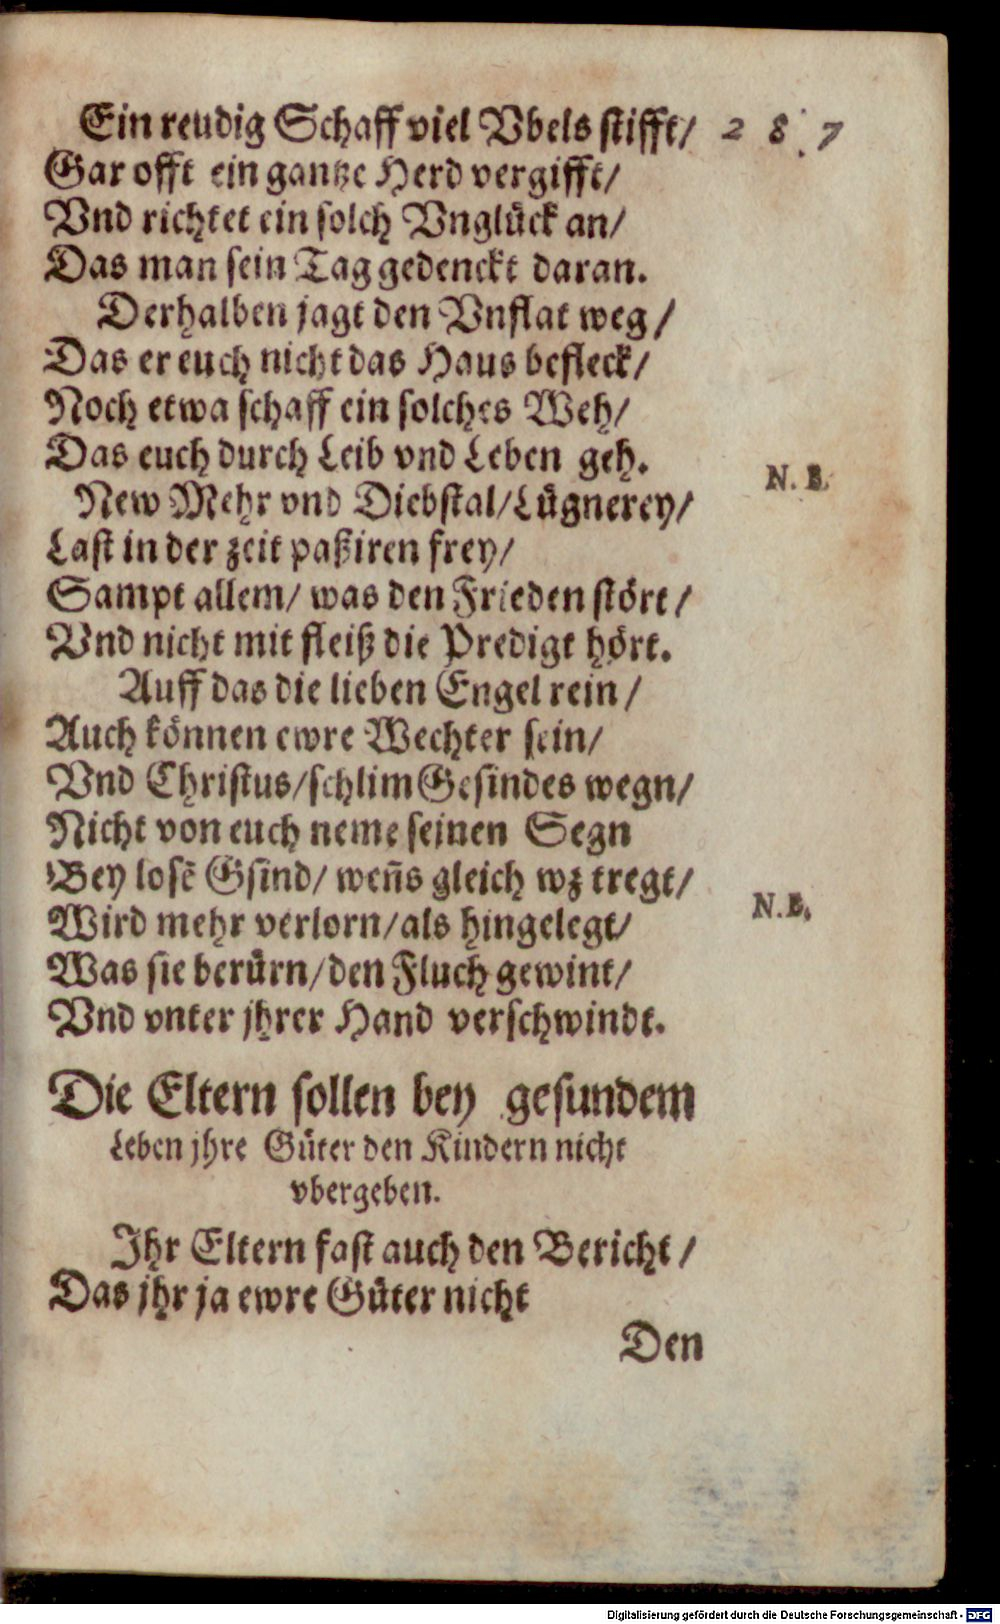 Ein reudig Schaff viel Vbels stifft/ 2 8 7
Gar offt ein gantze Herd vergifft/
Vnd richtet ein solch Vnglück an/
Das man sein Tag gedenckt daran.
Derhalben jagt den Vnflat weg/
Das er euch nicht das Haus befleck/
Noch etwa schaff ein solches Weh/
Das euch durch Leib vnd Leben geh.
N. B.
New Mehr vnd Diebstal/Lügnerey/
Last in der zeit paßiren frey/
Sampt allem/ was den Frieden stört/
Vnd nicht mit fleiß die Predigt hört.
Auff das die lieben Engel rein/
Auch können ewre Wechter sein/
Vnd Christus/schlim Gesindes wegn/
Nicht von euch neme seinen Segn
Bey losẽ Gsind/ weñs gleich wz tregt/
N.B.
Wird mehr verlorn/als hingelegt/
Was sie berürn/den Fluch gewint/
Vnd vnter jhrer Hand verschwindt.
Die Eltern sollen bey gesundem
Leben jhre Güter den Kindern nicht
vbergeben.
Ihr Eltern fast auch den Bericht/
Das jhr ja ewre Güter nicht
Den
Digitalisierung gefördert durch die Deutsche Forschungsgemeinschaft - DFG